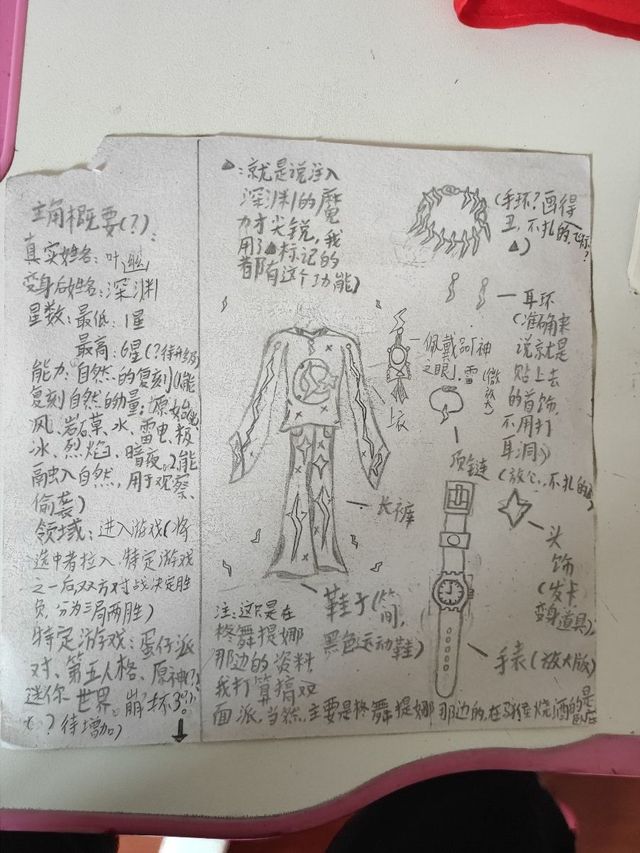 主角概要(?):
真实姓名:叶
变身后姓名:深渊
星数:最低:1星
最高:6星(?待升级)
能力:自然的复刻(1,能
复刻自然的力量:原始
风、岩石、草、水、雷电、极
冰、烈焰、暗夜。2,能
融入自然,用于观察、
偷袭)
领域:进入游戏(将
选中者拉入,特定游戏
之一后双方对战决定胜
负,分为三局两胜)
特定游戏:蛋仔派
对、第五人格、原神(?)
迷你世界。崩坏3?
(?待增加)
▲:就是说注入
深渊的魔
力才尖锐,我
用了▲标记的
都有这个功能)
(手环?画得
丑,不扎的
▲)
耳环
(准确来
说就是
贴上去
的首饰,
不用打
耳洞。)
佩戴 神
之眼,雷
上衣
项链
(放心,不扎的▲)
长裤
头
饰
(发卡
变身道具)
鞋子(简,
黑色运动鞋)
手表(放大版)
注:这只是在
柊舞提娜
那边的资料
我打算搞双
面派,当然,主要是柊舞提娜那边的,在 烧酒的是
卧底